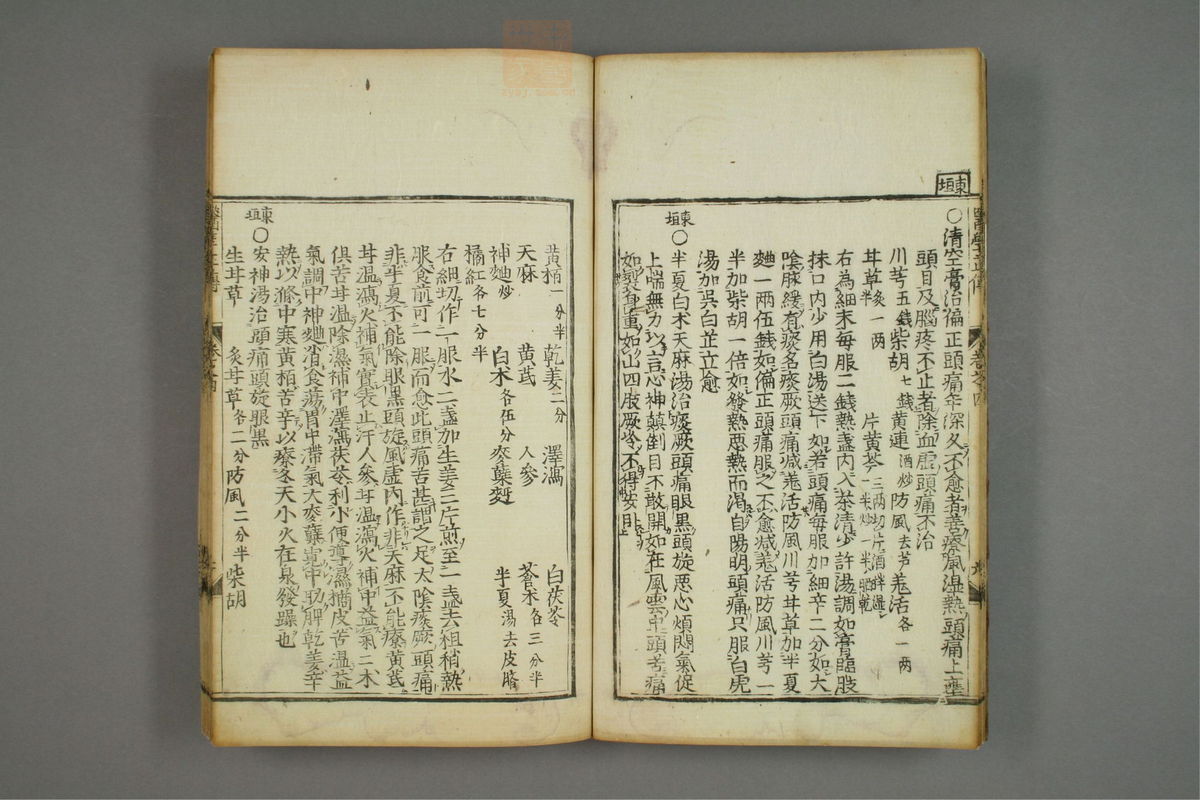 東垣
○清空膏治偏正頭痛年深久不愈者善療風湿熱頭痛上壅
頭目及腦疼不止者除血虛頭痛不治
川芎五錢柴胡七錢黄連酒炒防風去芦羗活各一两
甘草炙一两半片黄芩三两切片酒拌湿一半炒一半晒乾
右為細末每服二錢熱盞內入茶清少許湯調如膏臨卧
抹口內少用白湯送下如若頭痛每服加細辛二分如大
隂脉緩有痰名痰厥頭痛减羗活防風川芎甘草加半夏
麯一两伍錢如偏正頭痛服之不愈减羗活防風川芎一
半加柴胡一倍如發熱恶熱而渴自陽明頭痛只服白虎
湯加吳白芷立愈
東垣○半夏白术天麻湯治痰厥頭痛眼黒頭旋恶心煩悶氣促
上喘無力以言心神顛倒目不敢開如在風雲中頭苦痛
如裂身重如山四肢厥冷不得安卧
黄栢一分半乾姜二分澤瀉白茯苓
天麻黄芪人參蒼术各三分半
神麯炒白术各伍分麥糵麪半夏湯去皮臍
橘紅各七分半
右細切作一服水二盞加生姜三片煎至一盞去柤稍熱
服食前可一服而愈此頭痛苦甚謂之足太陰痰厥頭痛
非半夏不能除眼黒頭旋風虛內作非天麻不能療黄芪
甘温瀉火補氣實表止汗人參甘温瀉火補中益氣二术
俱苦甘温除濕補中澤瀉茯苓利小便導濕橘皮苦温益
氣調中神麯消食蕩胃中滯氣大麥糵寬中助脾乾姜辛
熱以滌中寒黄栢苦辛以療冬天小火在泉發躁也
東垣○安神湯治頭痛頭旋眼黒
生甘草炙甘草各二分防風二分半柴胡